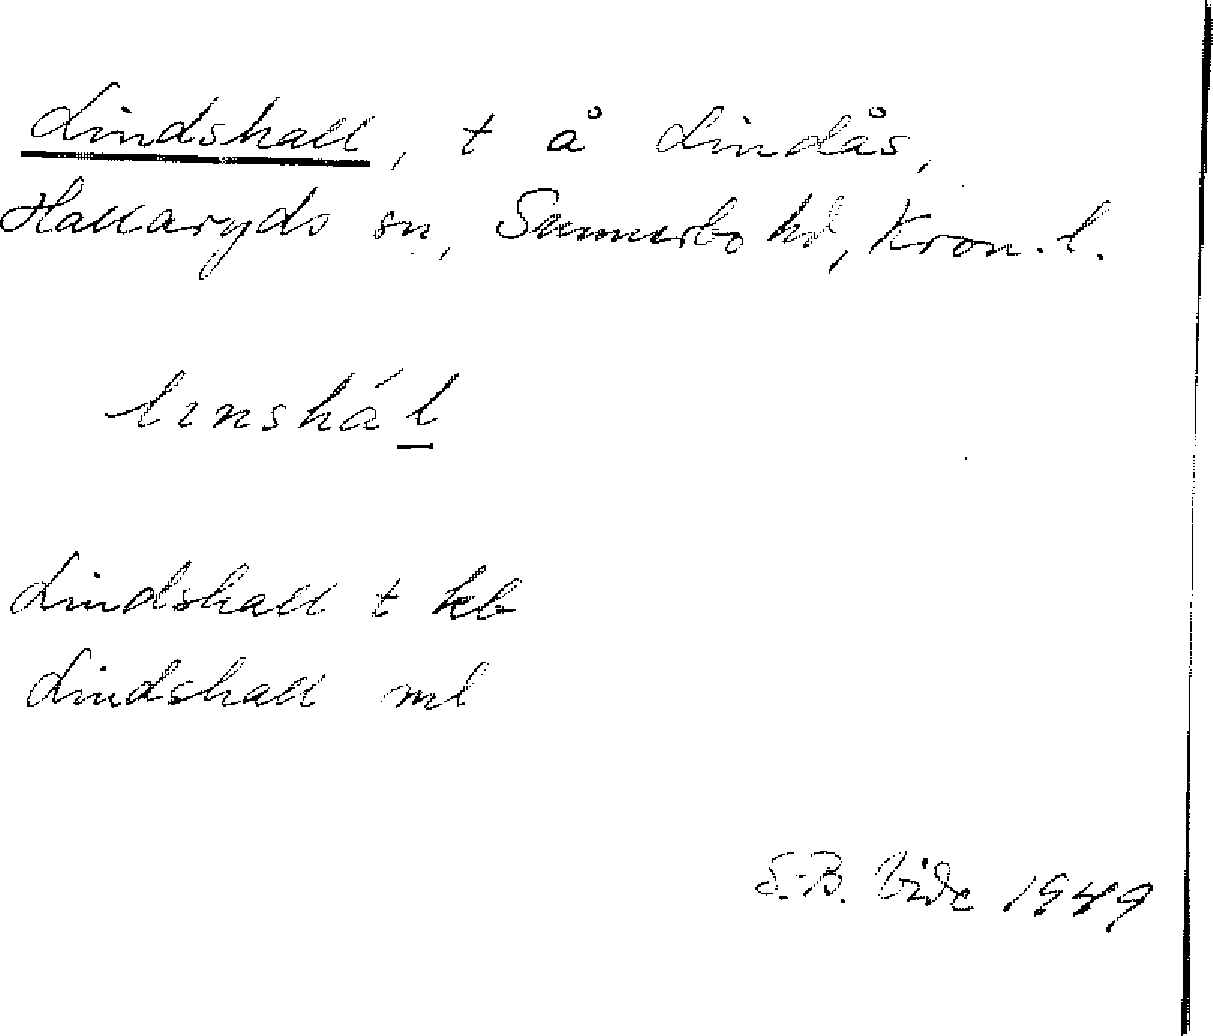 Lindshall, t å Lindås,
Hallaryds sn, Sunnerbo hd, Kron. l.
linshál
Lindshall t kb
Lindshall ml
S.-B. Vide 1949